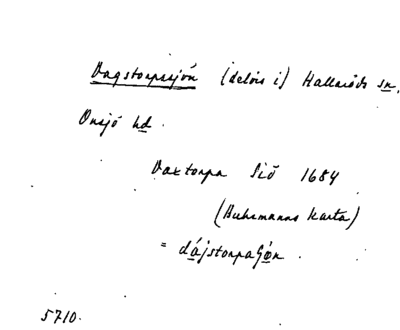 Dagstorpssjön (delvis i) Hallaröds sn,
Onsjö hd.
Daxtorpa Siö 1684
(Buhrmanns karta)
= dájstorpaʃǿn.
5710.